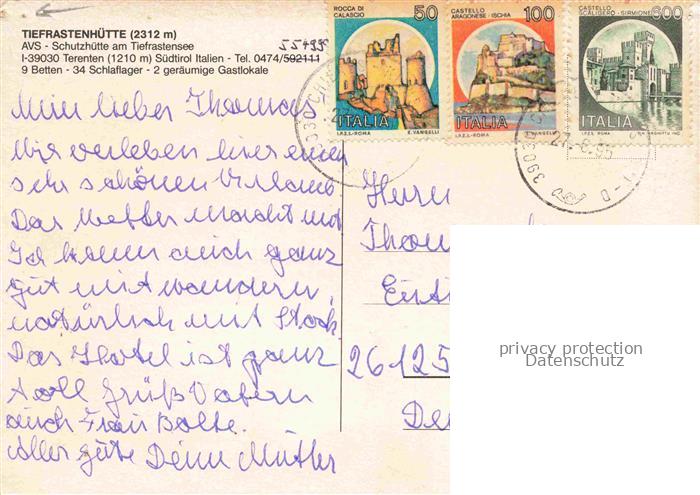 TIEFRASTENHÜTTE (2312 m)
AVS - Schutzhütte am Tiefrastensee
I-39030 Terenten (1210 m) Südtirol Italien - Tel. 0474/592111
55499
9 Betten - 34 Schlaflager - 2 geräumige Gastlokale
Mein lieber Thomas!
Wir verleben hier einen
sehr schönen Urlaub
Das Wetter macht mit
Ich kann auch ganz
gut mit wandern,
natürlich mit Stock
Das Hotel ist ganz
toll Grüß Vatern
auch Frau Bolte.
Alles gute Deine Mutter
ROCCA DI CALASCIO
50
ITALIA
I.P.Z.S.-ROMA E. VANGELLI
CASTELLO ARAGONESE - ISCHIA
100
ITALIA
I.P.Z.S.-ROMA E. VANGELLI
CASTELLO SCALIGERO - SIRMIONE
600
ITALIA
I.P.Z.S. ROMA
Herrn
Thom
26125
De
privacy protection
Datenschutz